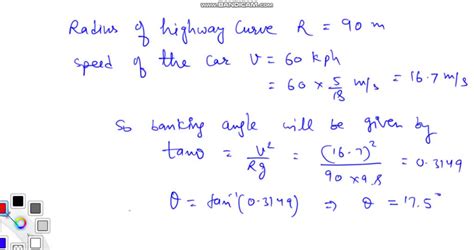 www.BANDICAM.com
Radius of highway Curve R = 90 m
speed of the car V = 60 kph
= 60 × 5/18 m/s = 16.7 m/s
So banking angle will be given by
tanθ = V²/Rg = (16.7)²/90×9.8 = 0.3149
θ = tan⁻¹(0.3149) ⇒ θ = 17.5°